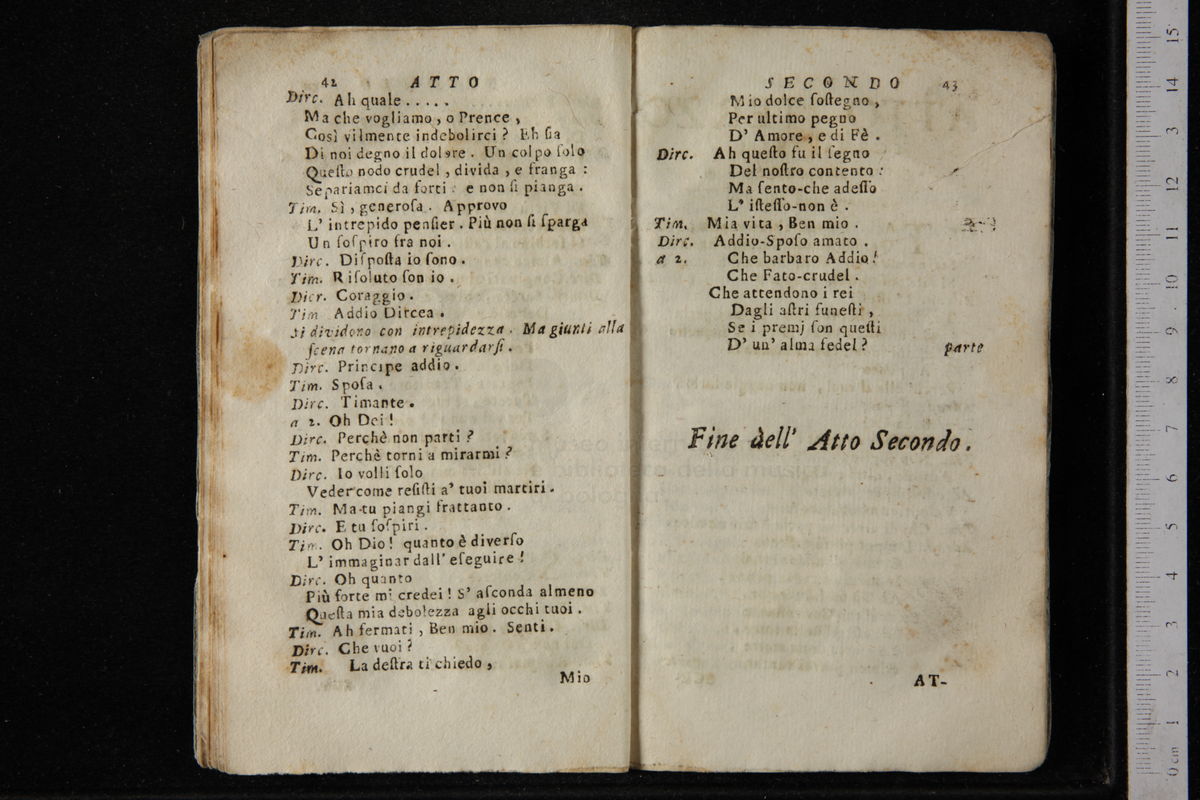 42 ATTO
Dirc. Ah quale . . . . .
Ma che vogliamo , o Prence ,
Così vilmente indebolirci ? Eh ſia
Di noi degno il dolore . Un colpo ſolo
Queſto nodo crudel , divida , e franga :
Separiamci da forti : e non ſi pianga .
Tim. Sì , generoſa . Approvo
L' intrepido penſier . Più non ſi ſparga
Un ſoſpiro fra noi .
Dirc. Diſpoſta io ſono .
Tim. Riſoluto ſon io .
Dicr. Coraggio .
Tim Addio Dircea .
Si dividono con intrepidezza . Ma giunti alla
ſcena tornano a riguardarſi .
Dirc. Principe addio .
Tim. Spoſa .
Dirc. Timante .
a 2. Oh Dei !
Dirc. Perchè non parti ?
Tim. Perchè torni a mirarmi ?
Dirc. Io volli ſolo
Veder come reſiſti a' tuoi martiri .
Tim. Ma-tu piangi frattanto .
Dirc. E tu ſoſpiri .
Tim. Oh Dio ! quanto è diverſo
L' immaginar dall' eſeguire !
Dirc. Oh quanto
Più forte mi credei ! S' aſconda almeno
Queſta mia debolezza agli occhi tuoi .
Tim. Ah fermati , Ben mio . Senti .
Dirc. Che vuoi ?
Tim. La deſtra ti chiedo ,
Mio
SECONDO 43
Mio dolce ſoſtegno ,
Per ultimo pegno
D' Amore , e di Fè .
Dirc. Ah queſto fu il ſegno
Del noſtro contento :
Ma ſento-che adeſſo
L' iſteſſo-non è .
Tim. Mia vita , Ben mio .
Dirc. Addio-Spoſo amato .
a 2. Che barbaro Addio !
Che Fato-crudel .
Che attendono i rei
Dagli aſtri funeſti ,
Se i premj ſon queſti
D' un' alma fedel ? parte
Fine dell' Atto Secondo .
AT-
0 cm 1 2 3 4 5 6 7 8 9 10 11 12 13 14 15